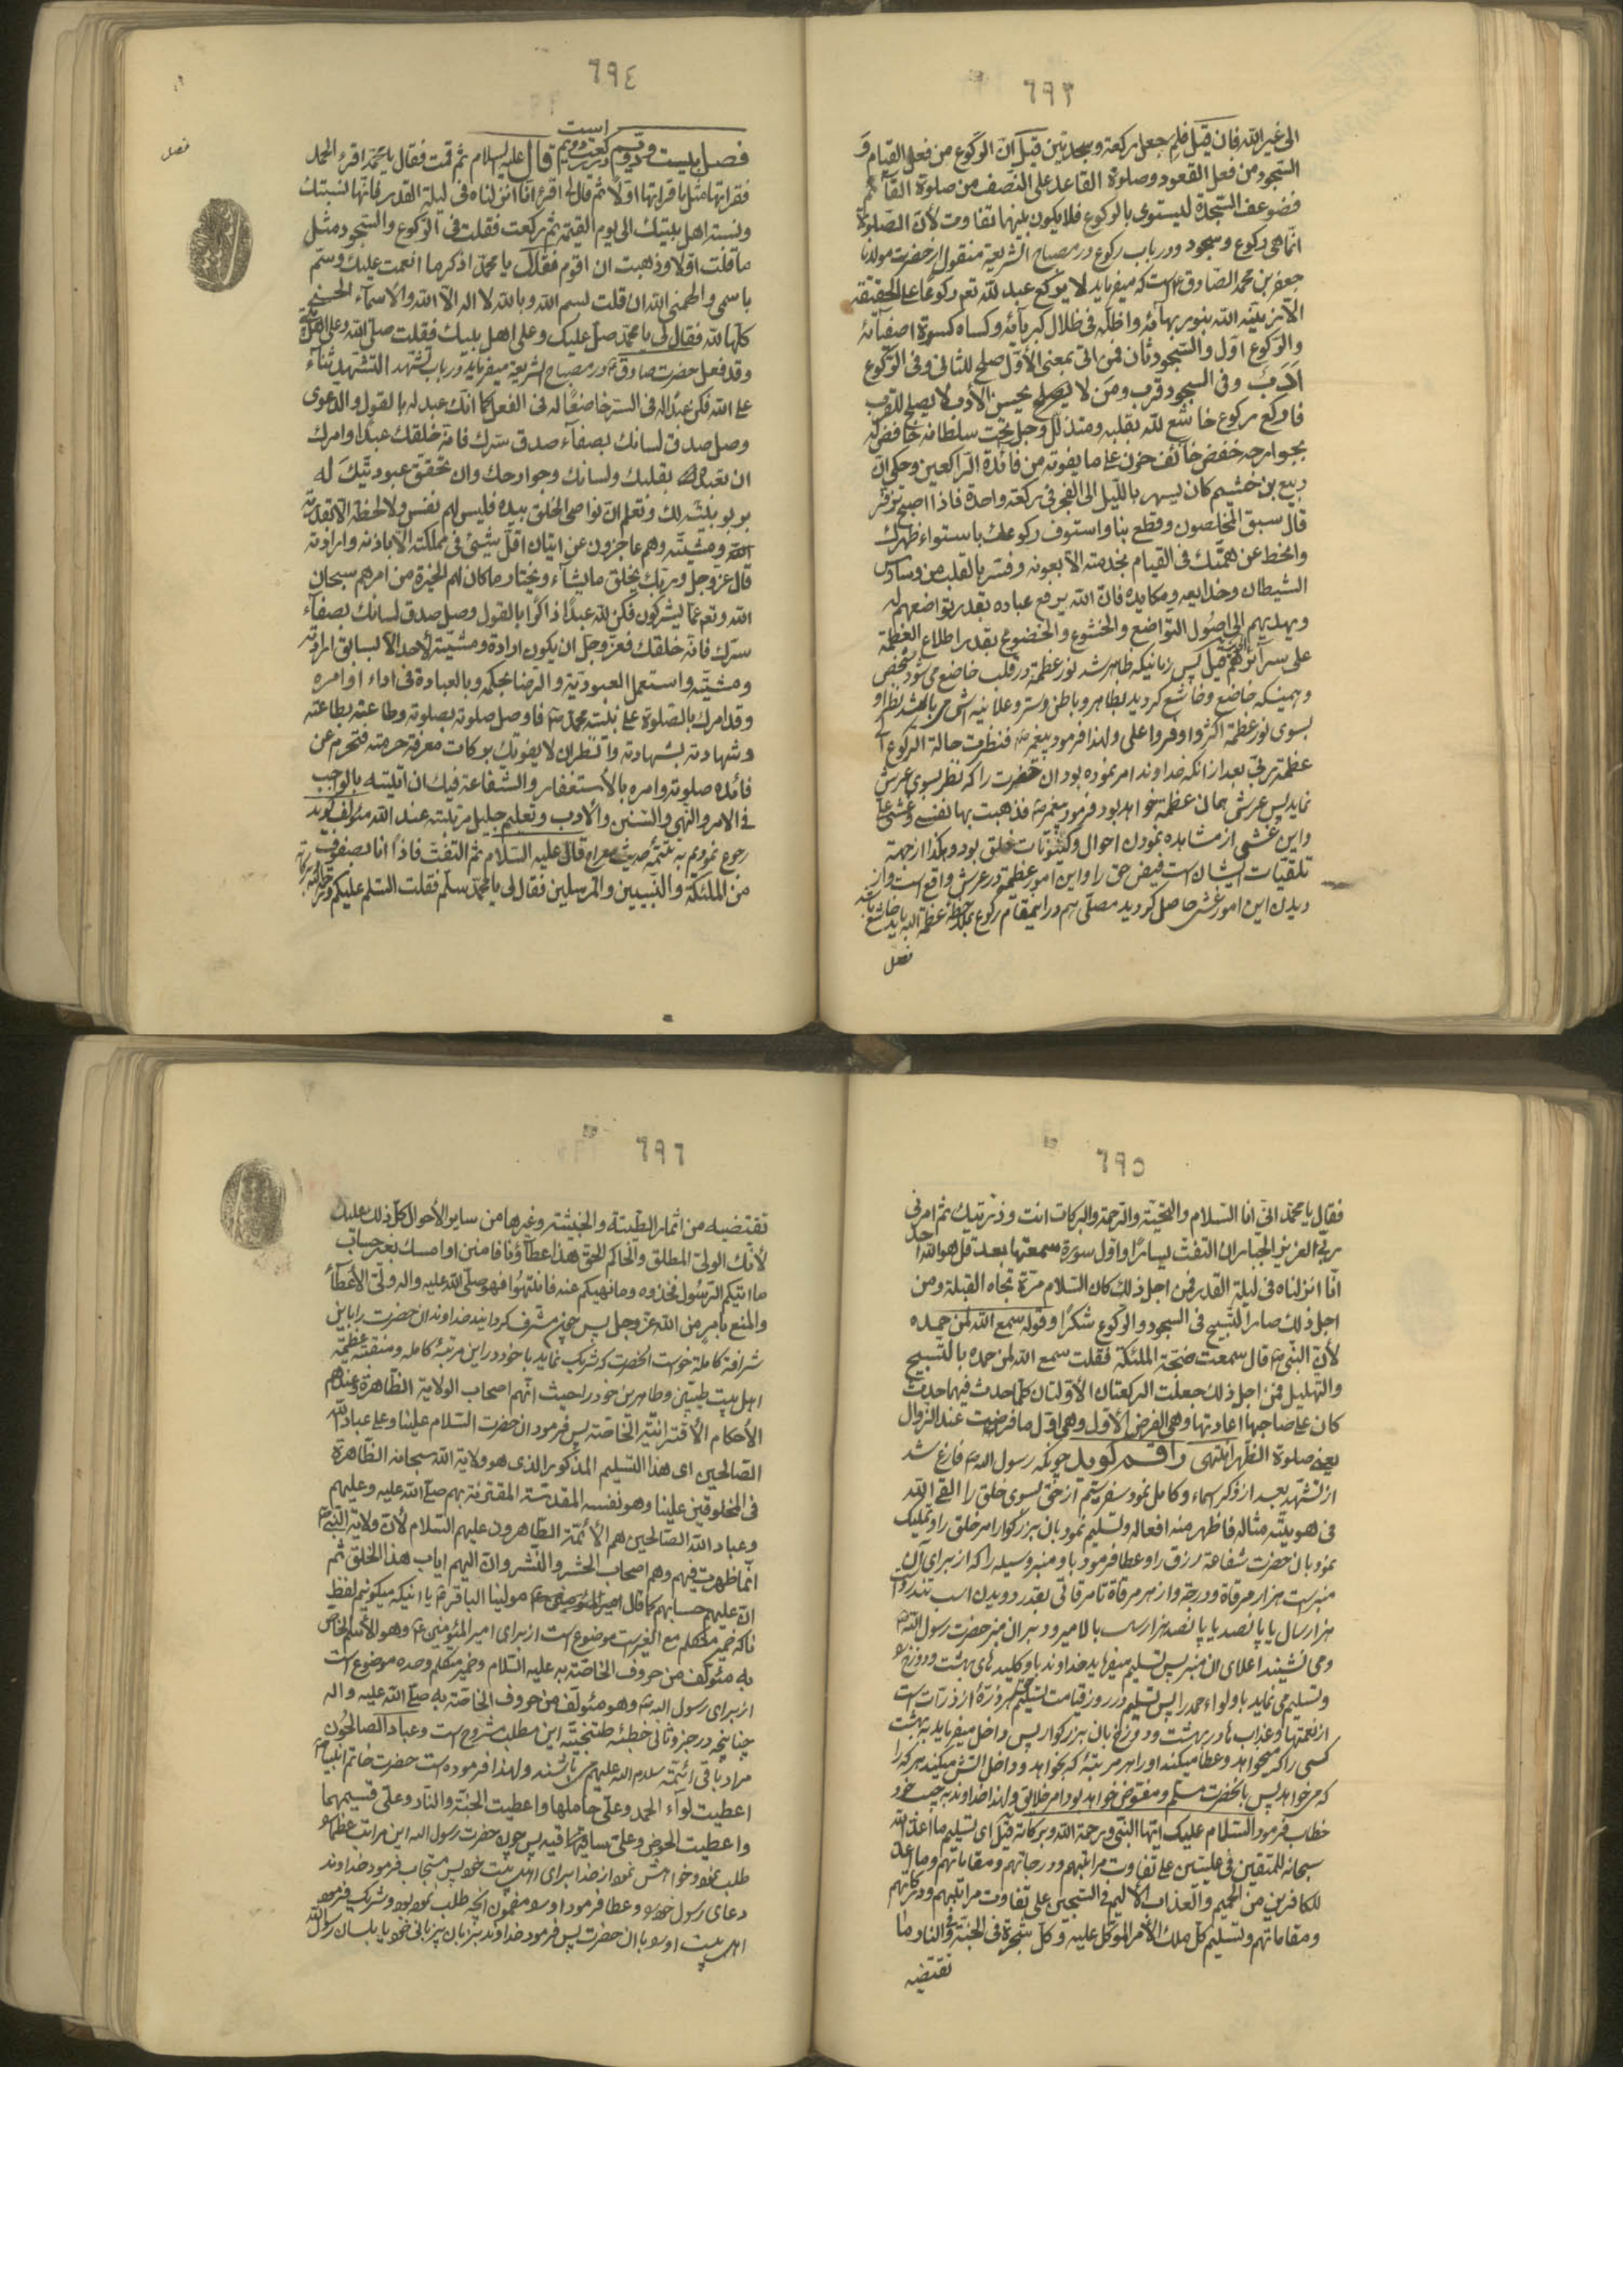 ٦٩٣
الی غیر الله فان قیل فلم جعل رکعة وسجدتین قیل ان الرکوع من فعل القیام و
السجود من فعل القعود وصلوة القاعد علی النصف من صلوة القائم
فضوعف السجدة لیستوی بالرکوع فلا یکون بینهما تفاوت لأن الصلوة
انما هی رکوع وسجود ودر باب رکوع در مصباح الشریعة منقول از حضرت مولانا
جعفر بن محمد الصادق ع است که میفرماید لا یرکع عبد لله تعم رکوعا علی الحقیقة
الا زینه الله بنور بهائه واظله فی ظلال کبریائه وکساه کسوة اصفیائه
والرکوع اول والسجود ثان فمن اتی بمعنی الأول صلح للثانی وفی الرکوع
ادب وفی السجود قرب ومن لا یحسن الأدب لا یصلح للقرب
فارکع رکوع خاشع لله بقلبه ومتذلل وجل تحت سلطانه خافض له
بجوارحه خفض خائف حزن علی ما یفوته من فائدة الراکعین وحکی ان
ربیع بن خثیم کان یسهر باللیل الی الفجر فی رکعة واحدة فاذا اصبح تزفر
قال سبق المخلصون وقطع بنا واستوف رکوعک باستواء ظهرک
وانحط عن همتک فی القیام بخدمته الا بعونه وفر بالقلب من وساوس
الشیطان وخدایعه ومکایده فان الله یرفع عباده بقدر تواضعهم له
ویهدیهم الی اصول التواضع والخشوع والخضوع بقدر اطلاع العظمة
علی سرائرهم پس زمانیکه ظاهر شد نور عظمة در قلب خاضع می شود شخص
وهمینکه خاضع وخاشع گردید بظاهر وباطن وستر وعلانیه اش می باشد نظر او
بسوی نور عظمة اکثر واوفر واعلی ولهذا فرمود پیغمبر ص فنظرت حالة الرکوع الی
عظمة ربی بعد از انکه خداوند امر نموده بود ان حضرت را که نظر بسوی عرش
نماید پس عرش همان عظمة خواهد بود فرمود پیغمبر ص فذهبت بها نفسی وغشی علی
واین غشی از مشاهده نمودن احوال وکینونات خلق بود وهکذا از جهة
تلقیات ایشان است فیض حق را واین امور عظیمة در عرش واقع است واز
دیدن این امور غشی حاصل گردید مصلی هم در اینمقام رکوع بملاحظه عظمة الله باید خاشع باشد
فصل
٦٩٤
فصل بیست ودویم در رکعت دویم است قال علیه السلام ثم قمت فقال یا محمد اقرء الحمد
فقراتها مثل ما قراتها اولا ثم قال لی اقرء انا انزلناه فی لیلة القدر فانها نسبتک
ونسبة اهل بیتک الی یوم القیمة ثم رکعت فقلت فی الرکوع والسجود مثل
ما قلت اولا وذهبت ان اقوم فقال یا محمد اذکر ما انعمت علیک وسم
باسمی والهمنی الله ان قلت بسم الله وبالله لا اله الا الله والاسماء الحسنی
کلها لله فقال لی یا محمد صل علیک وعلی اهل بیتک فقلت صلی الله علی وعلی اهل بیتی
وقد فعل حضرت صادق ع در مصباح الشریعة میفرماید در باب تشهد التشهد ثناء
علی الله فکن عبدا له فی السر خاضعا له فی الفعل کما انک عبد له بالقول والدعوی
وصل صدق لسانک بصفاء صدق سرک فانه خلقک عبدا وامرک
ان تعبده بقلبک ولسانک وجوارحک وان تحقق عبودیتک له
بربوبیته لک وتعلم ان نواصی الخلق بیده فلیس لهم نفس ولا لحظة الا بقدرته
ومشیته وهم عاجزون عن اتیان اقل شیئ فی مملکته الا باذنه وارادته
قال عز وجل وربک یخلق ما یشاء ویختار ما کان لهم الخیرة من امرهم سبحان
الله وتعم عما یشرکون فکن لله عبدا ذاکرا بالقول وصل صدق لسانک بصفاء
سرک فانه خلقک فعز وجل ان یکون ارادة ومشیته لأحد الا بسابق ارادته
ومشیته واستعمل العبودیة والرضا بحکمه وبالعبادة فی اداء اوامره
وقد امرک بالصلوة علی نبیه محمد ص فاوصل صلوته بصلوته وطاعته بطاعته
وشهادته بشهادته وانظر ان لا یفوتک برکات معرفة حرمته فتحرم عن
فائده صلوته وامره بالأستغفار والشفاعة فیک ان اتیته بالواجب
فی الامر والنهی والسنن والآدب وتعلم جلیل مرتبته عند الله مؤلف گوید
رجوع نمودیم به تتمه حدیث معراج قال علیه السلام ثم التفت فاذا انا بصفوف
من الملئکة والنبیین والمرسلین فقال لی یا محمد سلم فقلت السلم علیکم ورحمة الله وبرکاته
فصل
٦٩٥
فقال یا محمد انی انا السلام والتحیة والرحمة والبرکات انت وذریتک ثم امرنی
ربی العزیز الجبار ان التفت یسارا واول سورة سمعتها بعد قل هو الله احد
انا انزلناه فی لیلة القدر فمن اجل ذلک کان السلام مرة تجاه القبلة ومن
اجل ذلک صار التسبیح فی السجود والرکوع شکرا وقوله سمع الله لمن حمده
لأن النبی ص قال سمعت ضجة الملئکة فقلت سمع الله لمن حمده بالتسبیح
والتهلیل فمن اجل ذلک جعلت الرکعتان الاولتان کلما حدث فیهما حدث
کان علی صاحبها اعادتها وهی الفرض الاول وهی اول ما فرضت عند الزوال
یعنی صلوة الظهر انتهی راقم گوید چونکه رسول الله ص فارغ شد
از تشهد بعد از ذکر اسماء وکامل نمود سفر سیم از حق بسوی خلق را القی الله
فی هویته مثاله فاظهر منه افعاله وتسلیم نمود بان بزرگوار امر خلق را وتملیک
نمود بان حضرت شفاعة ورزق را وعطا فرمود باو منبر وسیله را که از برای آن
منبر است هزار مرقاة ودرجة واز هر مرقاة تا مرقاتی بقدر دویدن اسب تندرو
هزار سال یا پانصد یا پانصد هزار سال بالا میرود بر ان منبر حضرت رسول الله ص
ومی نشیند اعلای ان منبر پس تسلیم میفرماید خداوند باو کلید های بهشت ودوزخ را
وتسلیم می نماید باو لواء حمد را پس تسلیم در روز قیامت تسلیم هر ذرة از ذرات است
از نعمتها وعذاب ها در بهشت ودوزخ بان بزرگوار پس داخل میفرماید به بهشت
کسی را که میخواهد وعطا میکند او را هر مرتبة که بخواهد وداخل آتش میکند هر که را
که می خواهد پس بانحضرت مسلم ومفوض خواهد بود امر خلایق ولهذا خداوند به حبیب خود
خطاب فرمود السلام علیک ایها النبی ورحمة الله وبرکاته قیل ای تسلیم ما اعد الله
سبحانه للمتقین فی علیین علی تفاوت مراتبهم ودرجاتهم ومقاماتهم وما اعد
للکافرین من الحمیم والعذاب الألیم فی السجین علی تفاوت مراتبهم ودرکاتهم
ومقاماتهم وتسلیم کل ملک الأمر الموکل علیه وکل شجرة فی الجنة والنار وما
تقتضیه
٦٩٦
تقتضیه من اثمار الطیبة والخبیثة وغیرها من سایر الأحوال کل ذلک علیک
لأنک الولی المطلق والحاکم الحق هذا عطاؤنا فامنن او امسک بغیر حساب
ما اتیکم الرسول فخذوه وما نهیکم عنه فانتهوا فهو صلی الله علیه واله ولی الأعطاء
والمنع بامر من الله عز وجل پس چون مشرف گردانید خداوند ان حضرت را باین
شرافة کاملة خواست انحضرت که شریک نماید با خود در این مرتبة کامله ومنقبة عظیمة
اهل بیت طیبین وطاهرین خود را حیث انهم اصحاب الولایة الظاهرة وعندهم
الأحکام الأقترانیة الخاصة پس فرمود ان حضرت السلام علینا وعلی عباد الله
الصالحین ای هذا التسلیم المذکور الذی هو ولایة الله سبحانه الظاهرة
فی المخلوقین علینا وهو نفسه المقدسة المقترنة بهم صلی الله علیه وعلیهم
وعباد الله الصالحین هم الأئمة الطاهرون علیهم السلام لأن ولایة النبی ص
انما ظهرت فیهم وهم اصحاب الحشر والنشر وان الیهم ایاب هذا الخلق ثم
ان علیهم حسابهم کما قال مولینا الباقر ع یا اینکه میگوئیم لفظ
نا که ضمیر متکلم مع الغیر است موضوع است از برای امیر المؤمنین ع وهو الأسم الخاص
به مؤلف من حروف الخاصة به علیه السلام وضمیر متکلم وحده موضوع است
از برای رسول الله ص وهو مؤلف من حروف الخاصة به صلی الله علیه واله
چنانچه در جزو ثانی خطبه طتنجیة این مطلب مشروح است وعباد الصالحون
مراد باقی ائمة سلام الله علیهم می باشند ولهذا فرموده است حضرت خاتم انبیاء ص
اعطیت لواء الحمد وعلی حاملها واعطیت الجنة والنار وعلی قسیمهما
واعطیت الحوض وعلی ساقیها پس چون حضرت رسول الله این مراتب عظما را
طلب نمود وخواهش نمود از خدا برای اهل بیت خود پس مستجاب فرمود خداوند
دعای رسول خود را وعطا فرمود او را مضمون انچه طلب نموده بود وشریک فرمود
اهل بیت او را با ان حضرت پس فرمود خداوند بزبان بی زبانی خود یا بلسان رسول الله